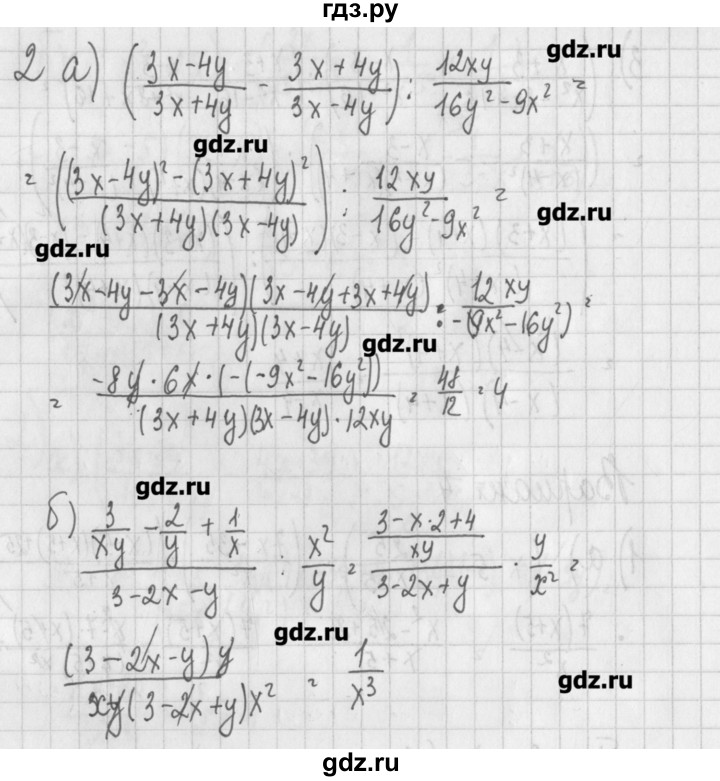 гдз.ру
gdz.ru
2 а) ((3x-4y)/(3x+4y) - (3x+4y)/(3x-4y)) : 12xy/(16y²-9x²) =
gdz.ru
= (((3x-4y)²-(3x+4y)²)/((3x+4y)(3x-4y))) : 12xy/(16y²-9x²) =
gdz.ru
gdz.ru
((3x-4y-3x-4y)(3x-4y+3x+4y))/((3x+4y)(3x-4y)) : 12xy/(-(9x²-16y²)) =
gdz.ru
= (-8y·6x·(-(-9x²-16y²)))/((3x+4y)(3x-4y)·12xy) = 48/12 = 4
gdz.ru
б) (3/xy - 2/y + 1/x)/(3-2x-y) : x²/y = ((3-x·2+4)/xy)/(3-2x+y) · y/x² =
gdz.ru
((3-2x-y)y)/(xy(3-2x+y)x²) = 1/x³
gdz.ru
gdz.ru